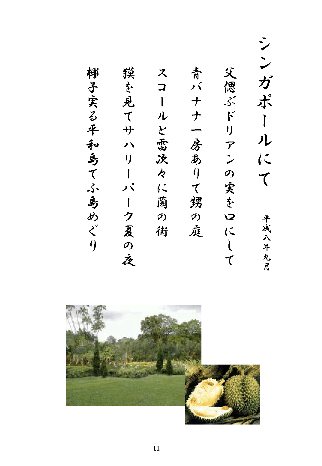 シンガポールにて
平成八年九月
父偲ぶドリアンの実を口にして
青バナナ一房ありて甥の庭
スコールと雷次々に蘭の街
獏を見てサハリーパーク夏の夜
椰子実る平和島てふ島めぐり
11